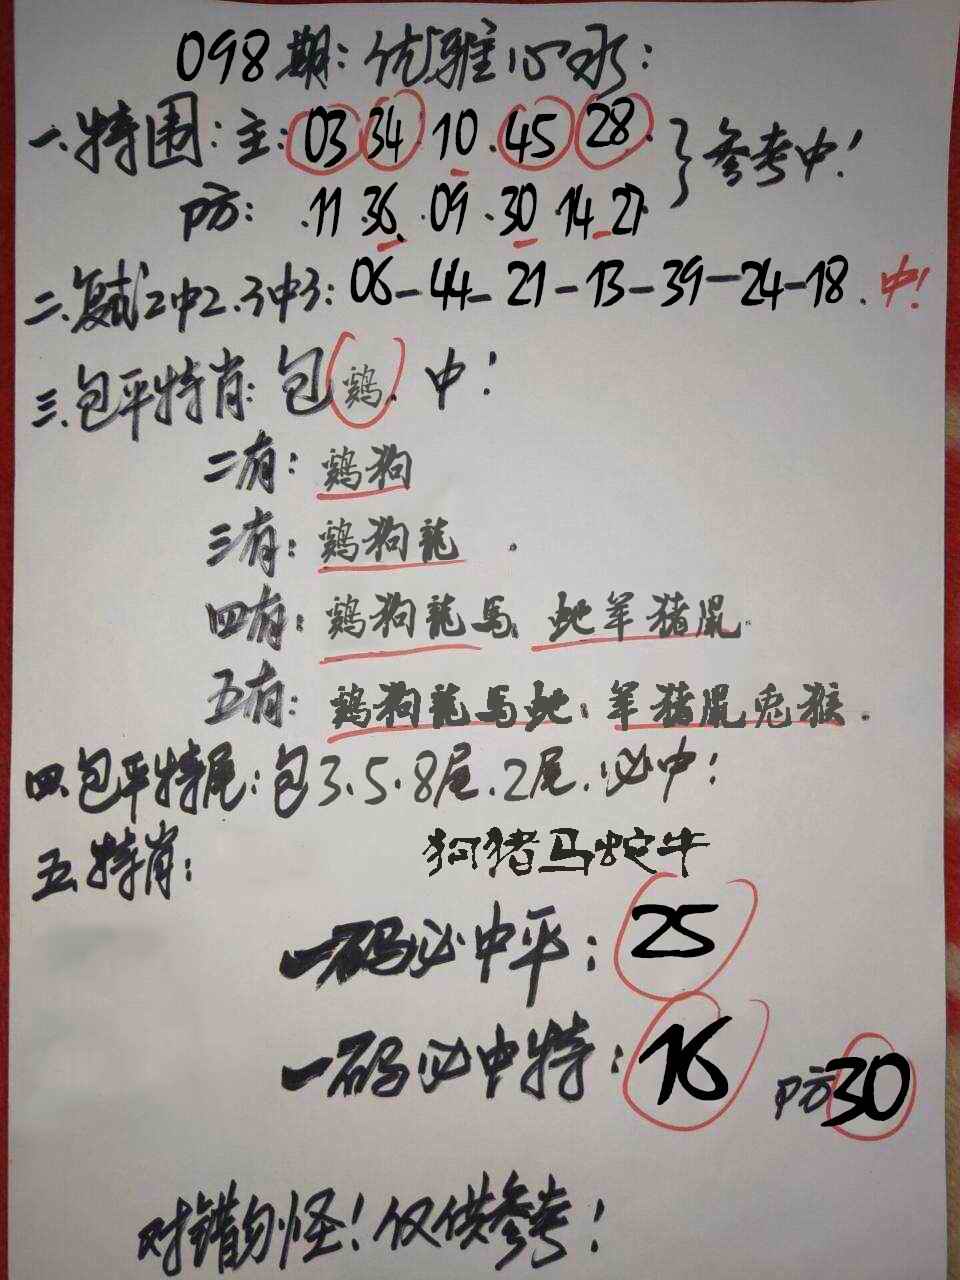 098期:优雅心水:
一.特围:主:03 34 10.45 28.
防:.11.36.09.30.14.21.
参考中!
二.复式2中2.3中3:06-44-21-13-39-24-18.中!
三.包平特肖:包鷄.中!
二有:鷄狗
三有:鷄狗龍.
四有:鷄狗龍馬.蛇羊猪鼠.
五有:鷄狗龍馬蛇.羊猪鼠兎猴.
四.包平特尾:包3.5.8尾.2尾.必中!
五.特肖:狗猪马蛇牛
一码必中平:25
一码必中特:16 防30
对错勿怪!仅供参考!